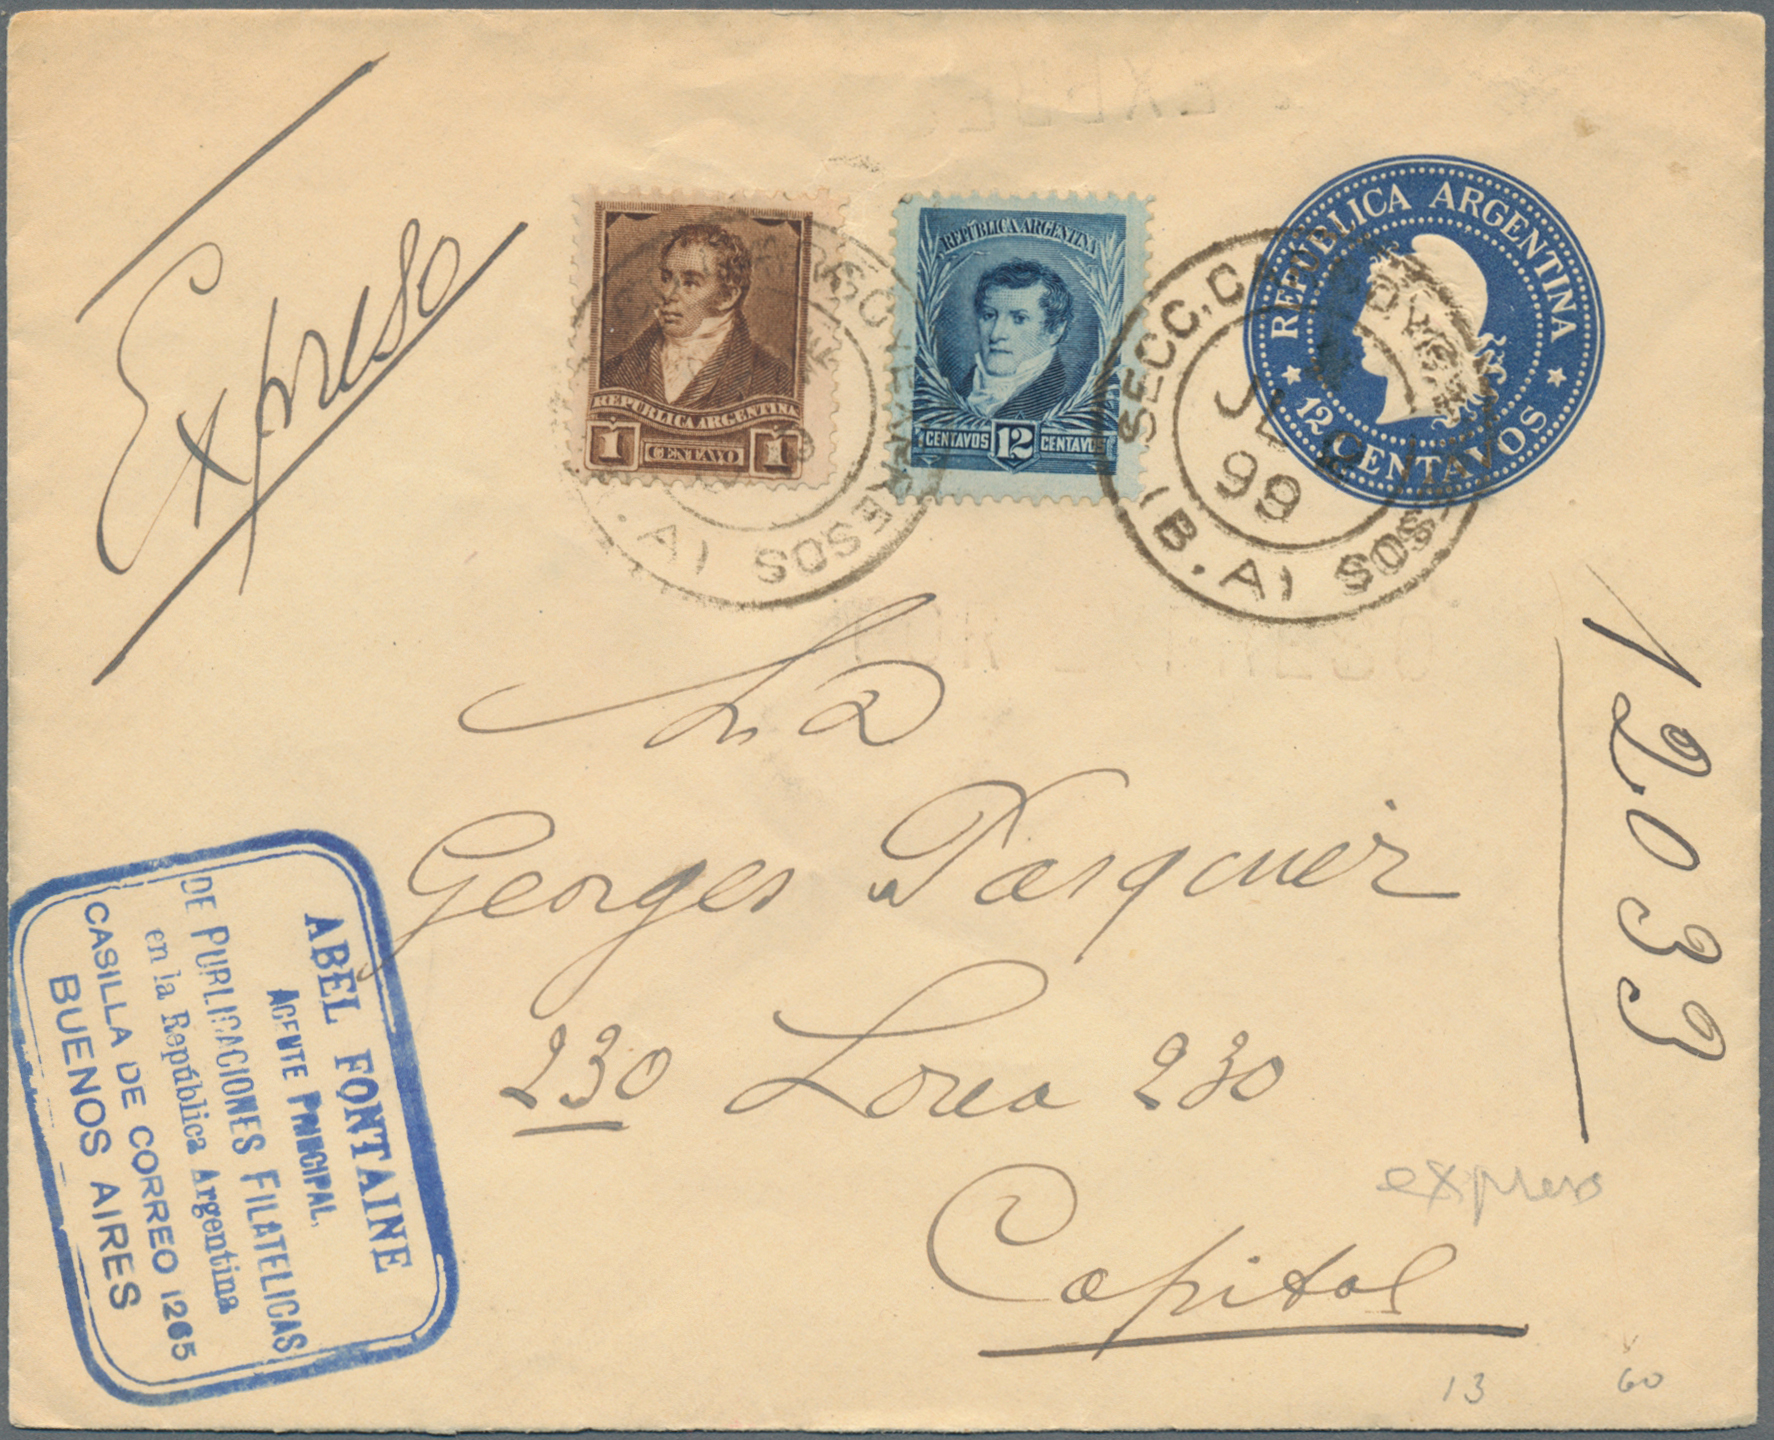 Expreso
REPÚBLICA ARGENTINA
1 CENTAVO 1
REPÚBLICA ARGENTINA
CENTAVOS 12 CENTAVOS
REPÚBLICA ARGENTINA
12 CENTAVOS
SECC.
JL 2
99
(B.A)
(B.A)
12.033
Georges Pasquier
230 Lorea 230
Capital
expreso
13
60
ABEL FONTAINE
AGENTE PRINCIPAL,
DE PUBLICACIONES FILATELICAS
en la República Argentina
CASILLA DE CORREO 1265
BUENOS AIRES